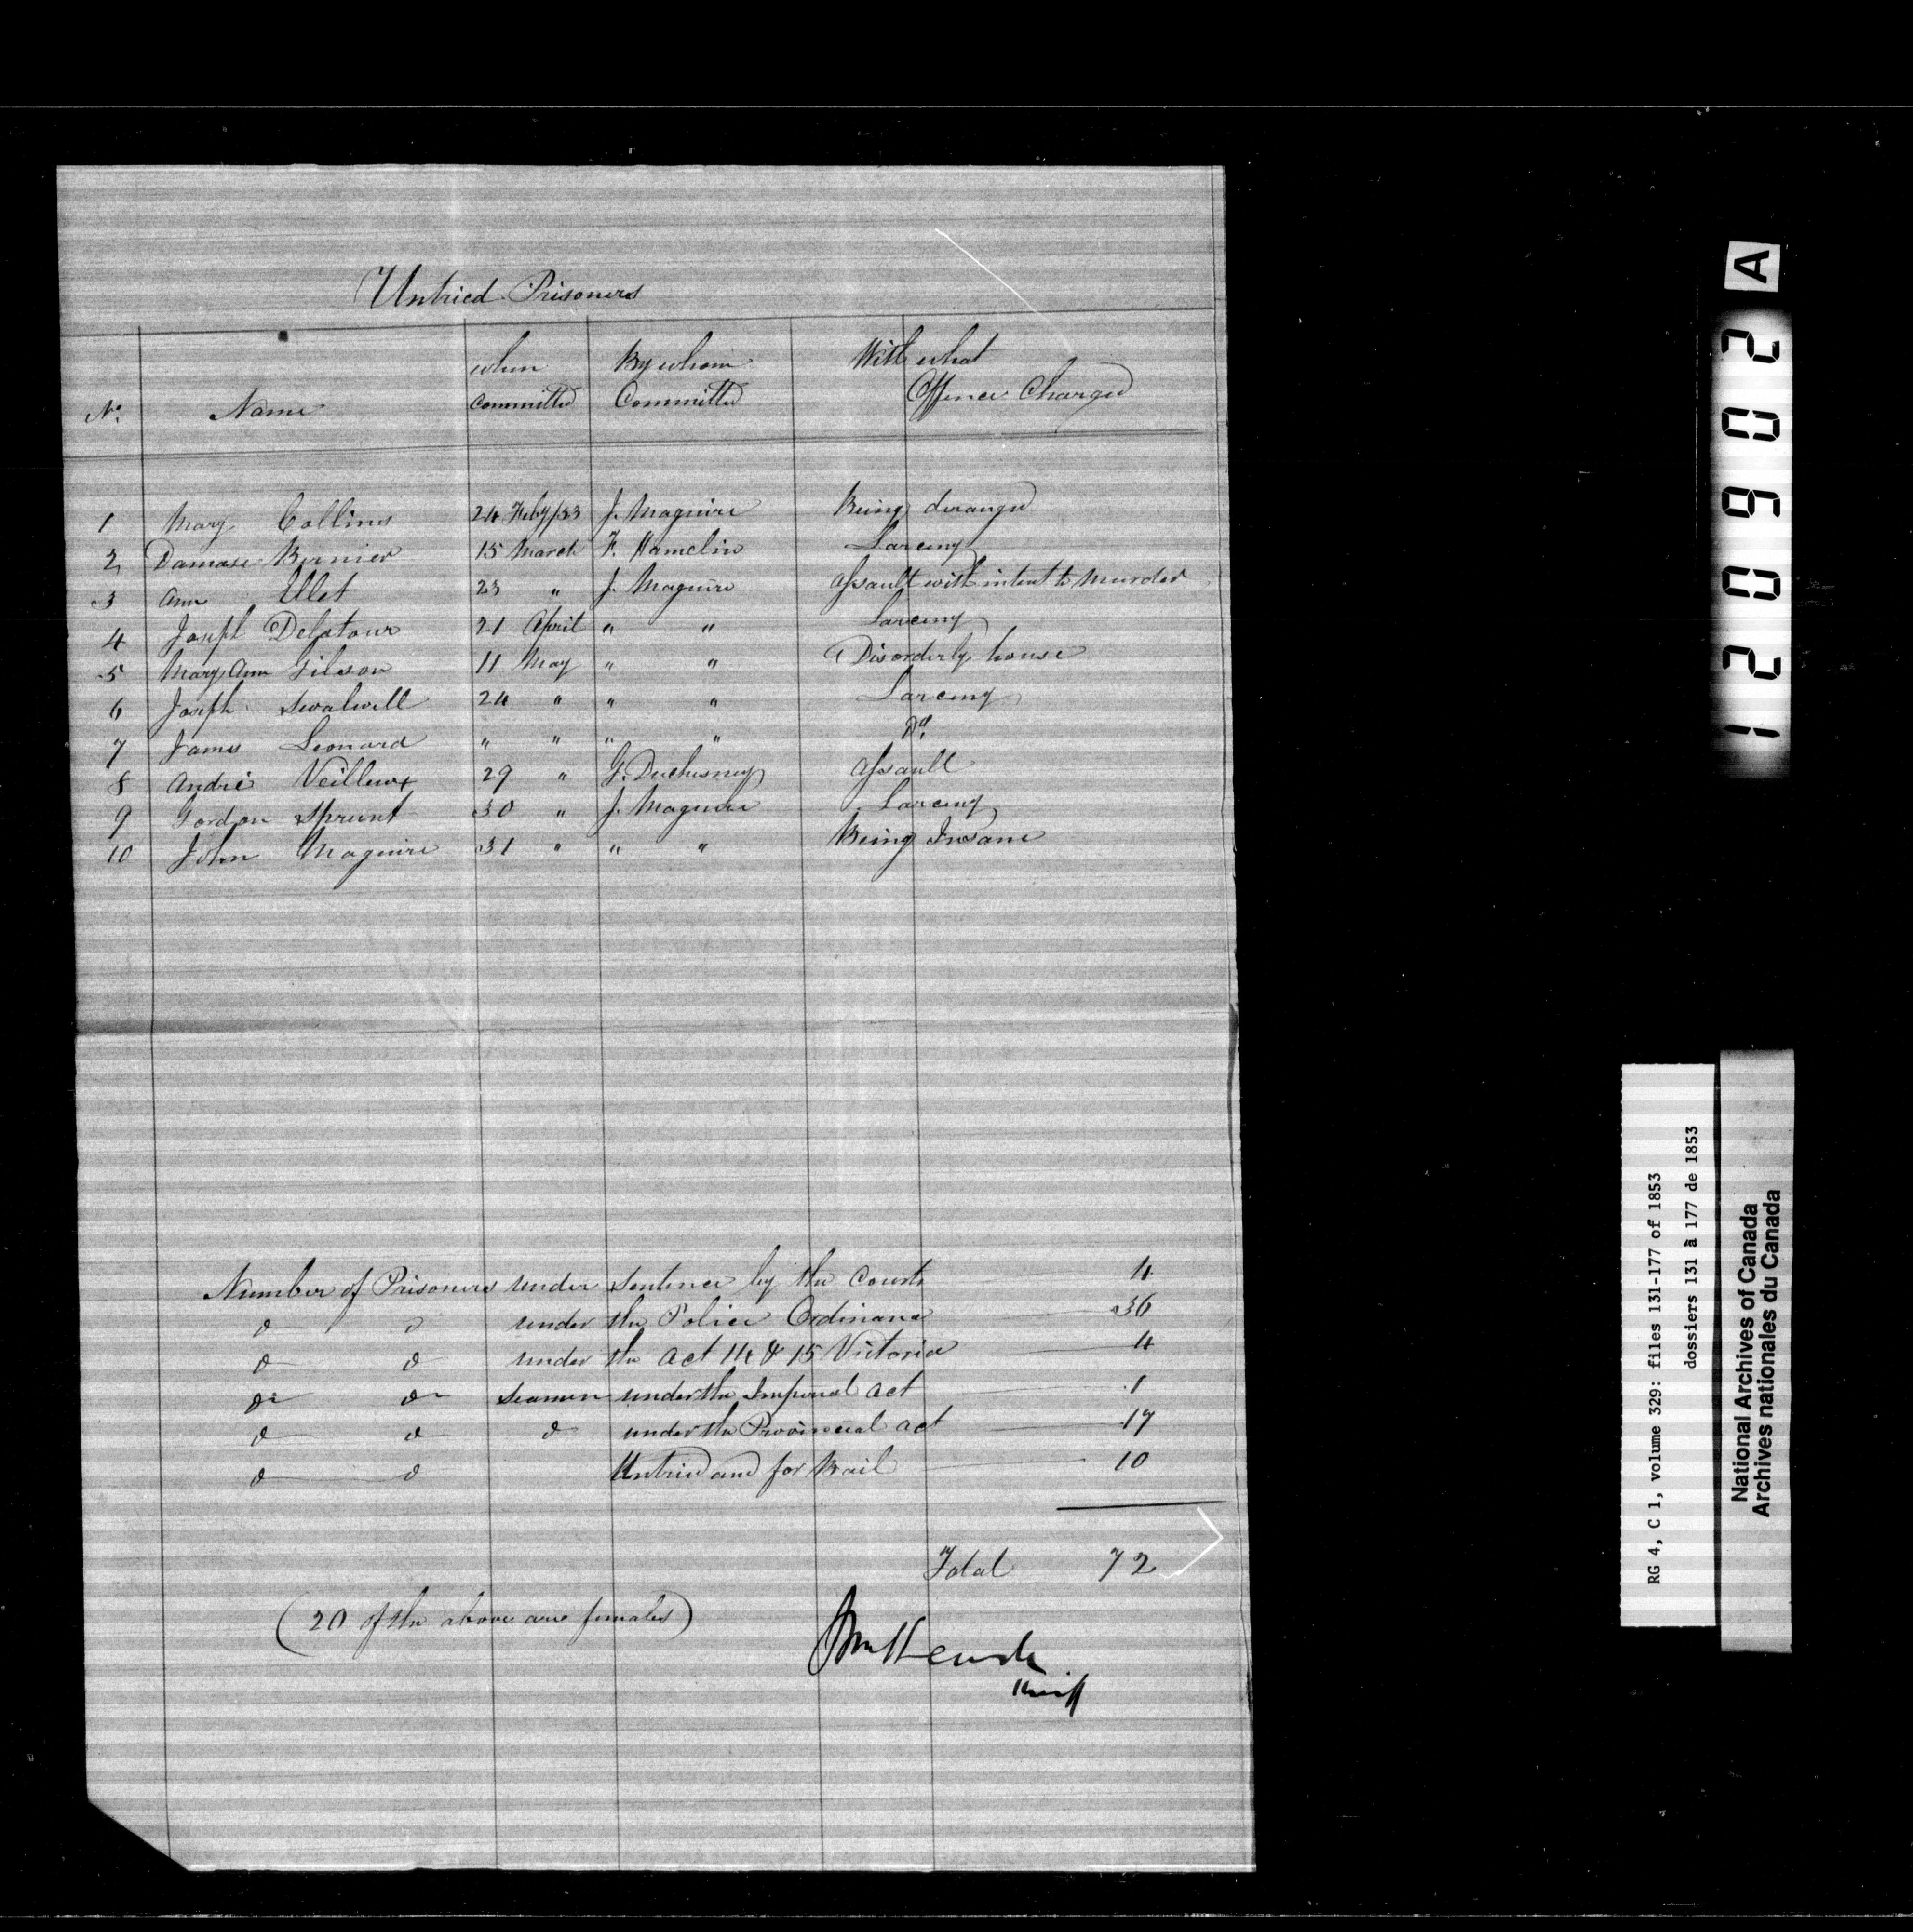 Untried Prisoners
No. Name when committed By whom Committed With what Offence Charged
1 Mary Collins 24 Feby/53 J. Maguire Being deranged
2 Damase Bernier 15 March F. Hamelin Larceny
3 Ann Ulet 23 " J. Maguire Assault with intent to Murder
4 Joseph Delatour 21 April " " Larceny
5 Mary Ann Gilson 11 May " " Disorderly house
6 Joseph Swalwell 24 " " " Larceny
7 James Leonard " " " " Do.
8 André Veilleux 29 " G. Duchesnay Assault
9 Gordon Sprunt 30 " J. Maguire Larceny
10 John Maguire 31 " " " Being Insane
Number of Prisoners under Sentence by the Courts 4
do do under the Police Ordinance 36
do do under the Act 14 & 15 Victoria 4
do do Seamen under the Imperial Act 1
do do do under the Provincial Act 17
do do Untried and for Bail 10
Total 72
(20 of the above are females)
Sheriff
A
120902
RG 4, C 1, volume 329: files 131-177 of 1853
dossiers 131 à 177 de 1853
National Archives of Canada
Archives nationales du Canada